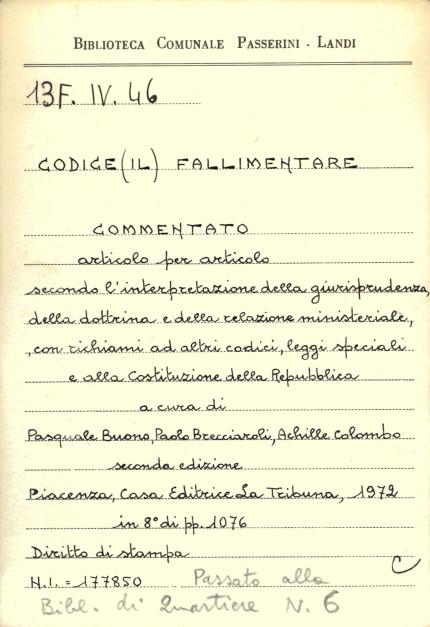 BIBLIOTECA COMUNALE PASSERINI - LANDI
13F. IV. 46
CODICE (IL) FALLIMENTARE
COMMENTATO
articolo per articolo
secondo l'interpretazione della giurisprudenza,
della dottrina e della relazione ministeriale,
,con richiami ad altri codici, leggi speciali
e alla Costituzione della Repubblica
a cura di
Pasquale Buono, Paolo Brecciaroli, Achille Colombo
seconda edizione
Piacenza, Casa Editrice La Tribuna, 1972
in 8° di pp. 1076
Diritto di stampa
C
N.I. = 177850 Passato alla
Bibl. di Quartiere N. 6